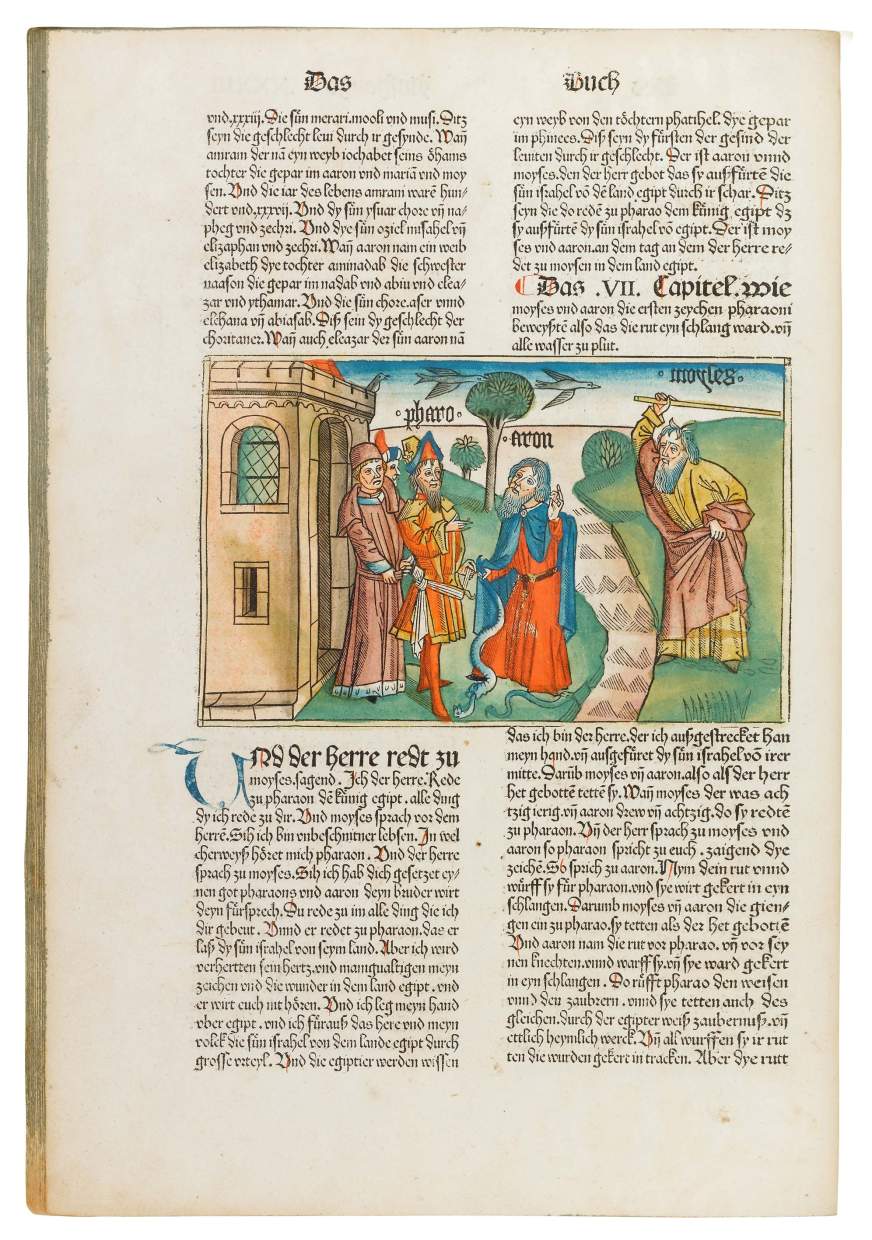 Das Buch
vnd.xxxiij. Die sün merari.mooli vnd musi. Ditz
seyn die geschlecht leui durch ir gesynde. Wañ
amram der nã eyn weyb iochabet seins öhams
tochter die gepar im aaron vnd mariã vnd moy
sen. Vnd die iar des lebens amrani warẽ hun-
dert vnd.xxxvij. Vnd dy sün ysuar chore vñ na-
pheg vnd zechri. Vnd dye sün oziel misahel vñ
elizaphan vnd zechri. Wañ aaron nam ein weib
elizabeth dye tochter aminadab die schwester
naason die gepar im nadab vnd abiu vnd elea-
zar vnd ythamar. Vnd die sün chore.aser vnnd
elchana vñ abiasab. Diß sein dy geschlecht der
choritaner. Wañ auch eleazar der sün aaron nã
eyn weyb von den töchtern phatihel. dye gepar
im phinees. Diß seyn dy fürsten der gesind der
leuiten durch ir geschlecht. Der ist aaron vnnd
moyses.den der herr gebot das sy außfürtẽ die
sün israhel võ dẽ land egipt durch ir schar. Ditz
seyn die do redẽ zu pharao dem künig egipt dz
sy außfürtẽ dy sün israhel võ egipt. Der ist moy
ses vnd aaron.an dem tag an dem der herre re-
det zu moysen in dem land egipt.
Das .VII. Capitel. wie
moyses vnd aaron die ersten zeychen pharaoni
beweyßtẽ also das die rut eyn schlang ward.vñ
alle wasser zu plut.
pharo
aron
moyses
VNd der Herre redt zu
moyses.sagend. Jch der herre. Rede
zu pharaon dẽ künig egipt . alle ding
dy ich rede zu dir. Vnd moyses sprach vor dem
herrẽ. Sih ich bin vnbeschnitner lebsen. Jn wel
cherweyß höret mich pharaon . Vnd der herre
sprach zu moyses. Sih ich hab dich gesetzet ey-
nen got pharaons vnd aaron deyn bruder wirt
deyn fürsprech. Du rede zu im alle ding die ich
dir gebeut . Vnnd er redet zu pharaon.das er
laß dy sün israhel von seym land. Aber ich wird
verhertten sein hertz.vnd manigualtigen meyn
zeichen vnd die wunder in dem land egipt .vnd
er wirt euch nit hören. Vnd ich leg meyn hand
vber egipt . vnd ich fürauß das here vnd meyn
volck die sün israhel von dem lande egipt durch
grosse vrteyl. Vnd die egiptier werden wissen
das ich bin der herre.der ich außgestrecket han
meyn hand.vñ außgefüret dy sün israhel võ irer
mitte. Darũb moyses vñ aaron.also als der herr
het gebottẽ tettẽ sy. Wañ moyses der was ach
tzig ierig.vñ aaron drew vñ achtzig.do sy redtẽ
zu pharaon. Vñ der herr sprach zu moyses vnd
aaron so pharaon spricht zu euch . zaigend dye
zeichẽ. So sprich zu aaron. Nym dein rut vnnd
würff sy für pharaon.vnd sye wirt gekert in eyn
schlangen. Darumb moyses vñ aaron die gien-
gen ein zu pharao.sy tetten als der het gebottẽ
Vnd aaron nam die rut vor pharao. vñ vor sey
nen knechten.vnnd warff sy.vñ sye ward gekert
in eyn schlangen . Do rüfft pharao den weisen
vnnd den zaubrern . vnnd sye tetten auch des
gleichen.durch der egipter weiß zaubernuß.vñ
ettlich heymlich werck. Vñ all wurffen sy ir rut
ten die wurden gekert in tracken. Aber dye rutt